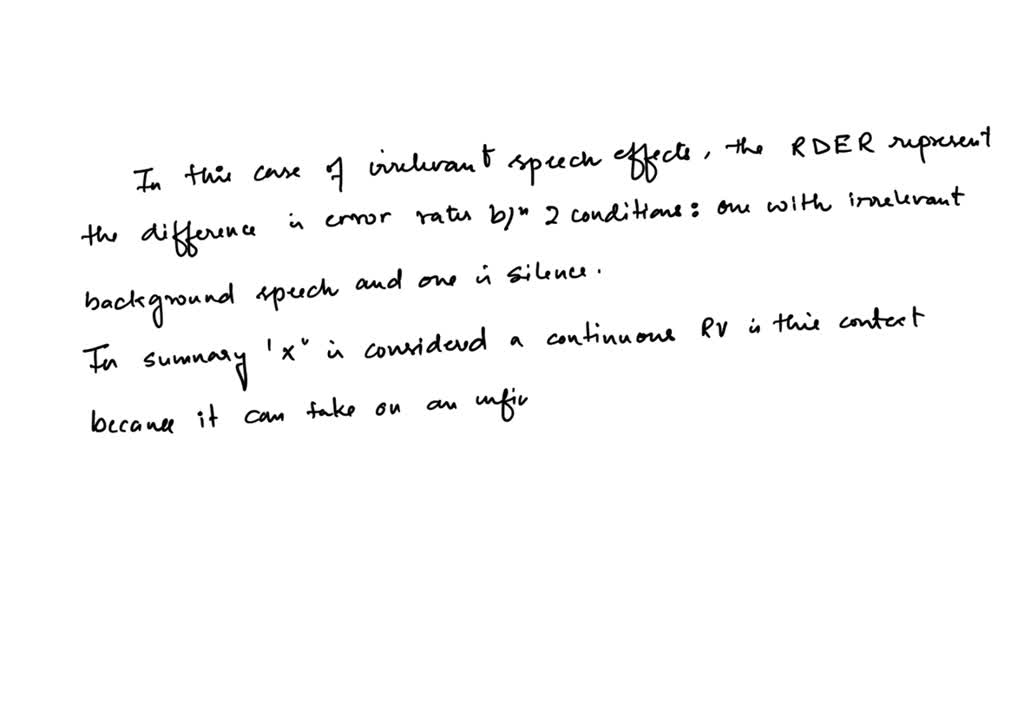 In this case of irrelevant speech effects, the RDER represent
the difference in error rates b/n 2 conditions: one with irrelevant
background speech and one in silence.
In summary 'x" is considered a continuous RV in this context
because it can take on an infin